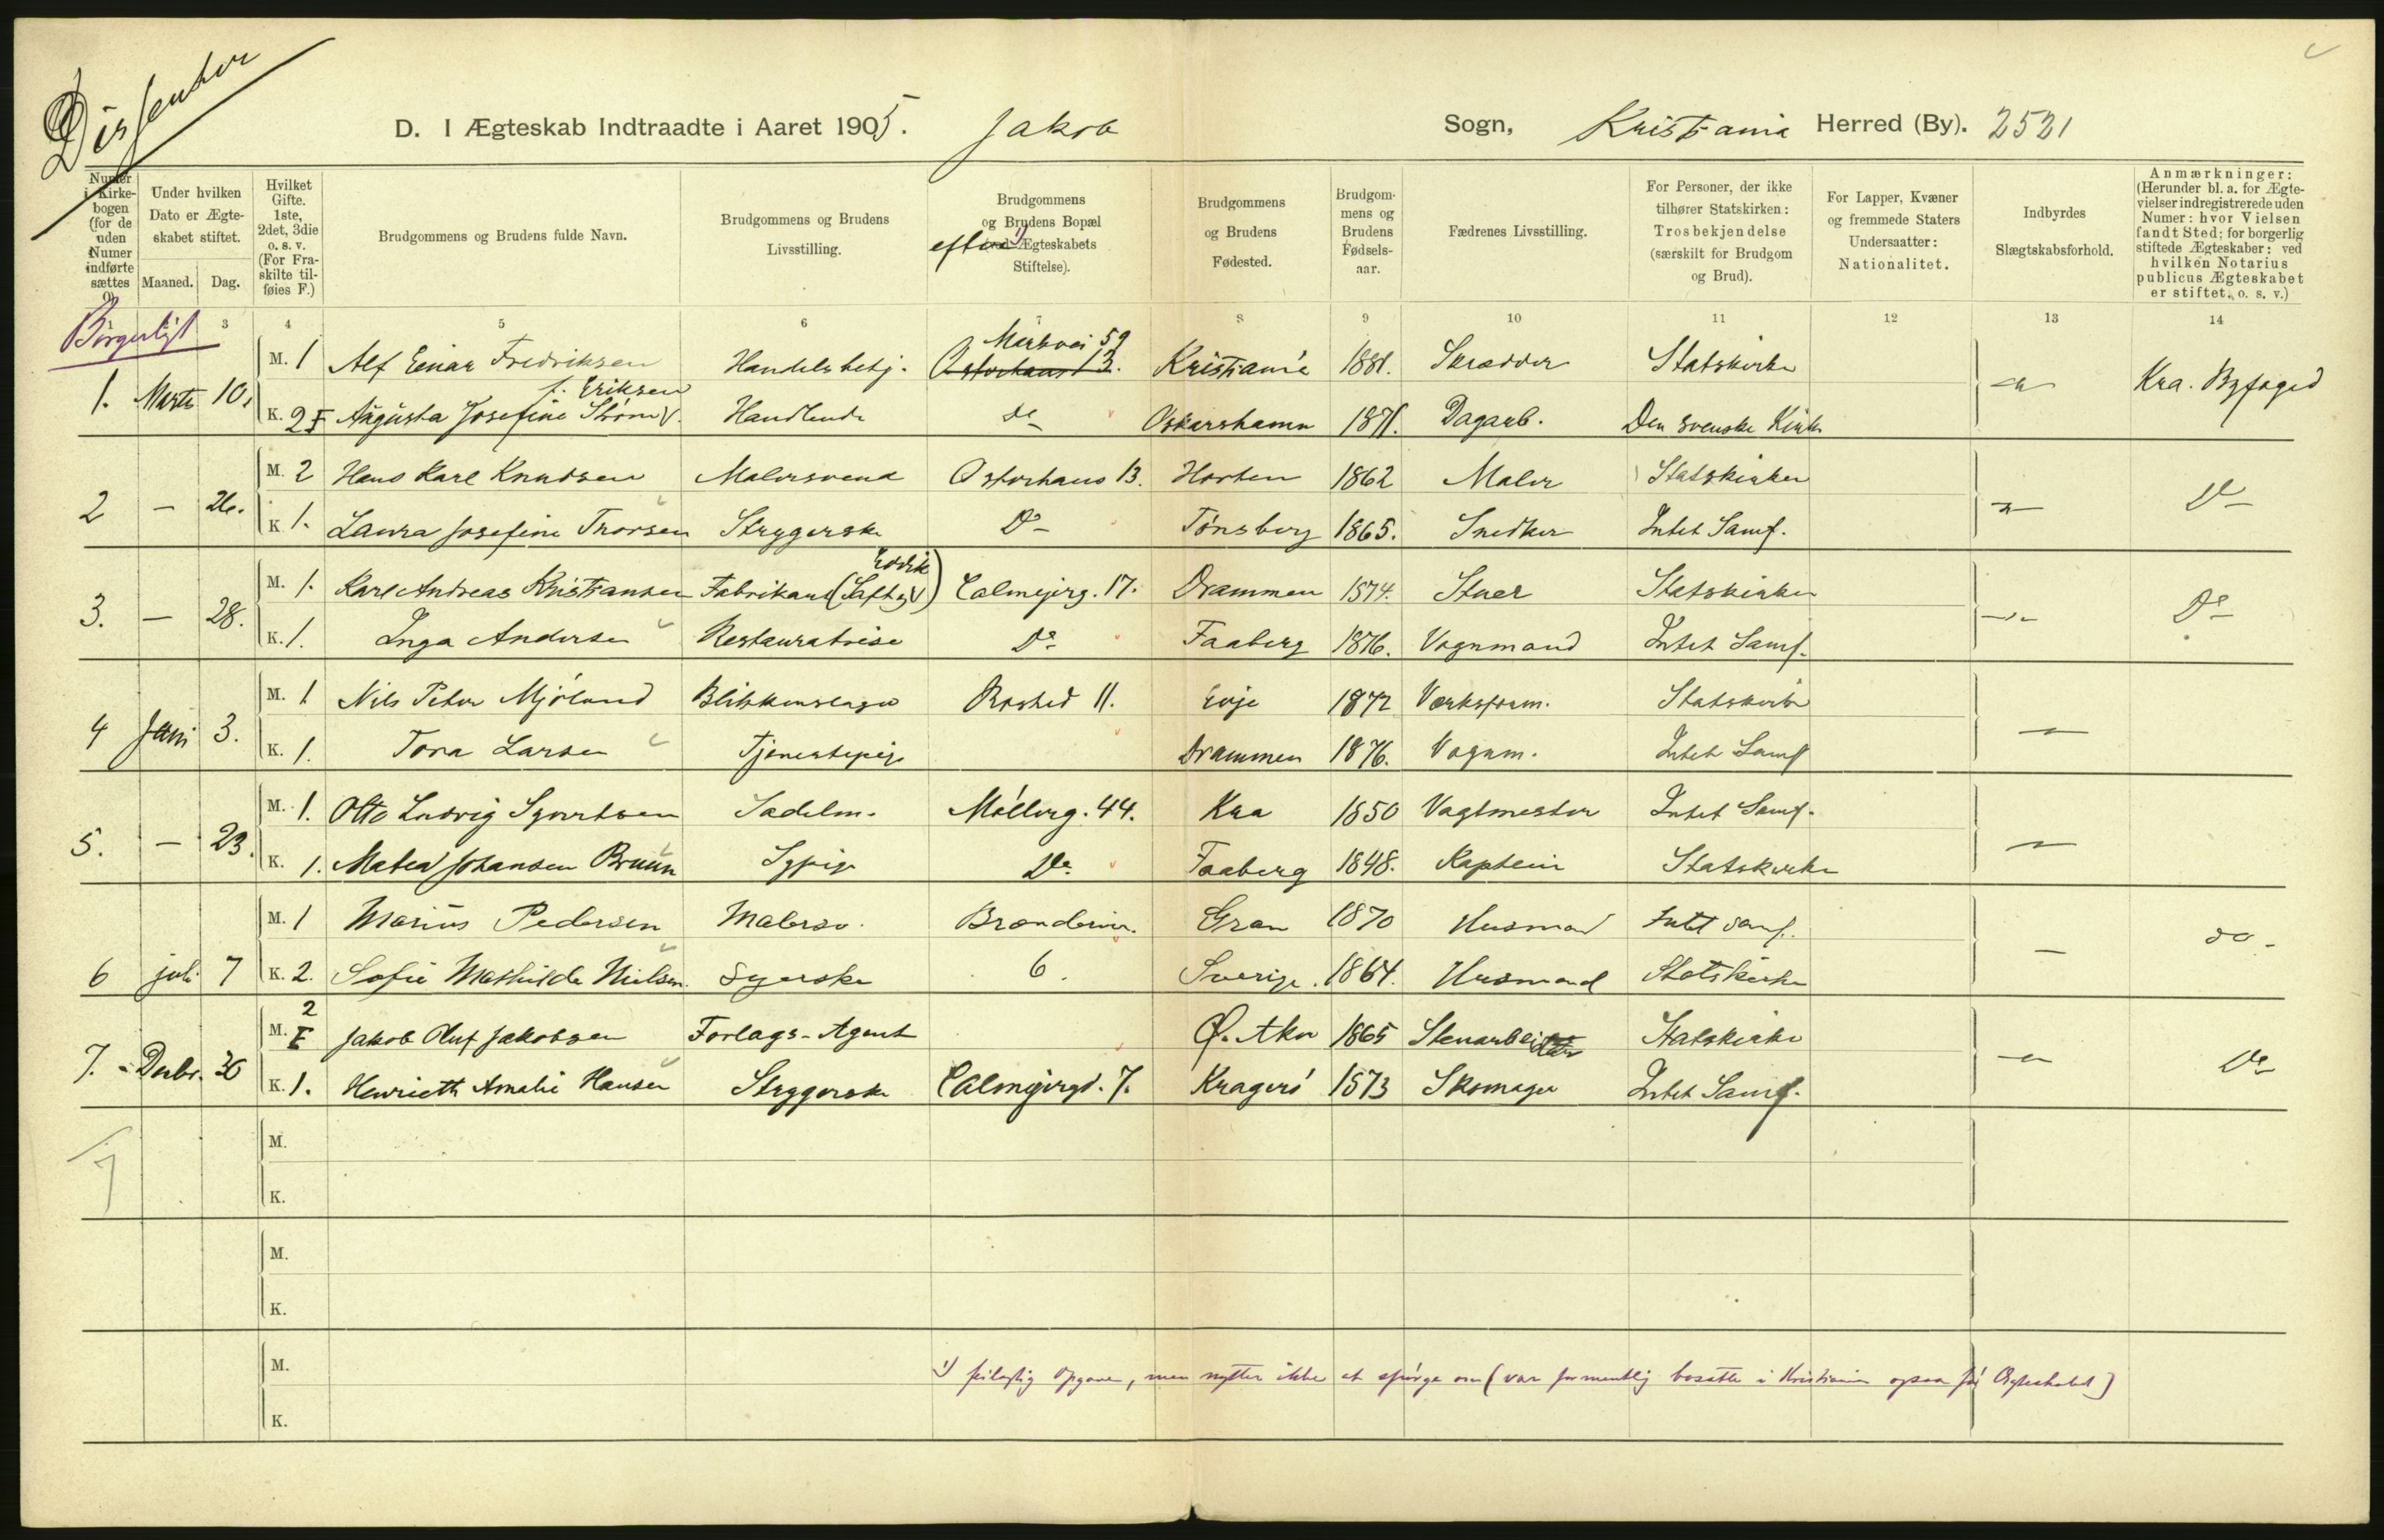 Dissenter
D. I Ægteskab Indtraadte i Aaret 1905. Jakob Sogn, Kristiania Herred (By). 2521
Numer i Kirkebogen (for de uden Numer indførte sættes 0).
Under hvilken Dato er Ægteskabet stiftet.
Maaned. Dag.
Hvilket Gifte. 1ste, 2det, 3die o. s. v. (For Fraskilte tilføies F.)
Brudgommens og Brudens fulde Navn.
Brudgommens og Brudens Livsstilling.
Brudgommens og Brudens Bopæl efter 1) ved Ægteskabets Stiftelse).
Brudgommens og Brudens Fødested.
Brudgommens og Brudens Fødselsaar.
Fædrenes Livsstilling.
For Personer, der ikke tilhører Statskirken: Trosbekjendelse (særskilt for Brudgom og Brud).
For Lapper, Kvæner og fremmede Staters Undersaatter: Nationalitet.
Indbyrdes Slægtskabsforhold.
Anmærkninger: (Herunder bl. a. for Ægtevielser indregistrerede uden Numer: hvor Vielsen fandt Sted; for borgerlig stiftede Ægteskaber: ved hvilken Notarius publicus Ægteskabet er stiftet, o. s. v.)
3 4 5 6 7 8 9 10 11 12 13 14
Borgerligt
Markvei 59
M. 1 Alf Einar Fredriksen Handelsbetj. Osterhaus 13. Kristiania 1881. Skrædder Statskirke
f. Eriksen
1. Marts 10. K. 2 F Augusta Josefine Strøm Handlende do Oskarshamn 1871. Dagarb. Den svenske Kirke Kra. Byfoged
M. 2 Hans Karl Knudsen Malersvend Osterhaus 13. Horten 1862 Maler Statskirken
2 — 26. K. 1. Laura Josefine Thorsen Strygerske Do Tønsberg 1865. Snedker Intet Samf. Do
M. 1. Karl Andreas Kristiansen Fabrikant (Saft & Eddik) Calmeyerg. 17. Drammen 1874. Stuer Statskirken
3. — 28. K. 1. Inga Andersen Restauratrise Do Faaberg 1876. Vognmand Intet Samf. Do
M. 1 Nils Peter Mjølund Blikkenslager Rosted 11. Evje 1872 Værksform. Statskirke
4 Juni 3. K. 1. Tora Larsen Tjenestepige Drammen 1876. Vognm. Intet Samf
M. 1. Otto Ludvig Syvertsen Sadelm. Møllerg. 44. Kra 1850 Vagtmester Intet Samf.
5. — 23. K. 1. Matea Johansen Bruun Sypige Do. Faaberg 1848. Kaptein Statskirke
M. 1 Marius Pedersen Malersv. Branderiv. Gran 1870 Husmand Intet Samf.
6 juli 7 K. 2. Sofie Mathilde Nielsen Syerske 6. Sverige. 1864. Husmand Statskirke do
M. 2 F Jakob Oluf Jakobsen Forlags-Agent Ø. Aker 1865 Stenarbeider Statskirke
7. Decbr. 30 K. 1. Henriette Amalie Hansen Strygerske Calmeyergd. 7. Kragerø 1873 Skomager Intet Samf. Do
7
M.
K.
M.
K.
M.
1) feilagtig Opgave, men nytter ikke at spørge om (var formentlig bosatte i Kristiania ogsaa før Ægteskabet)
K.